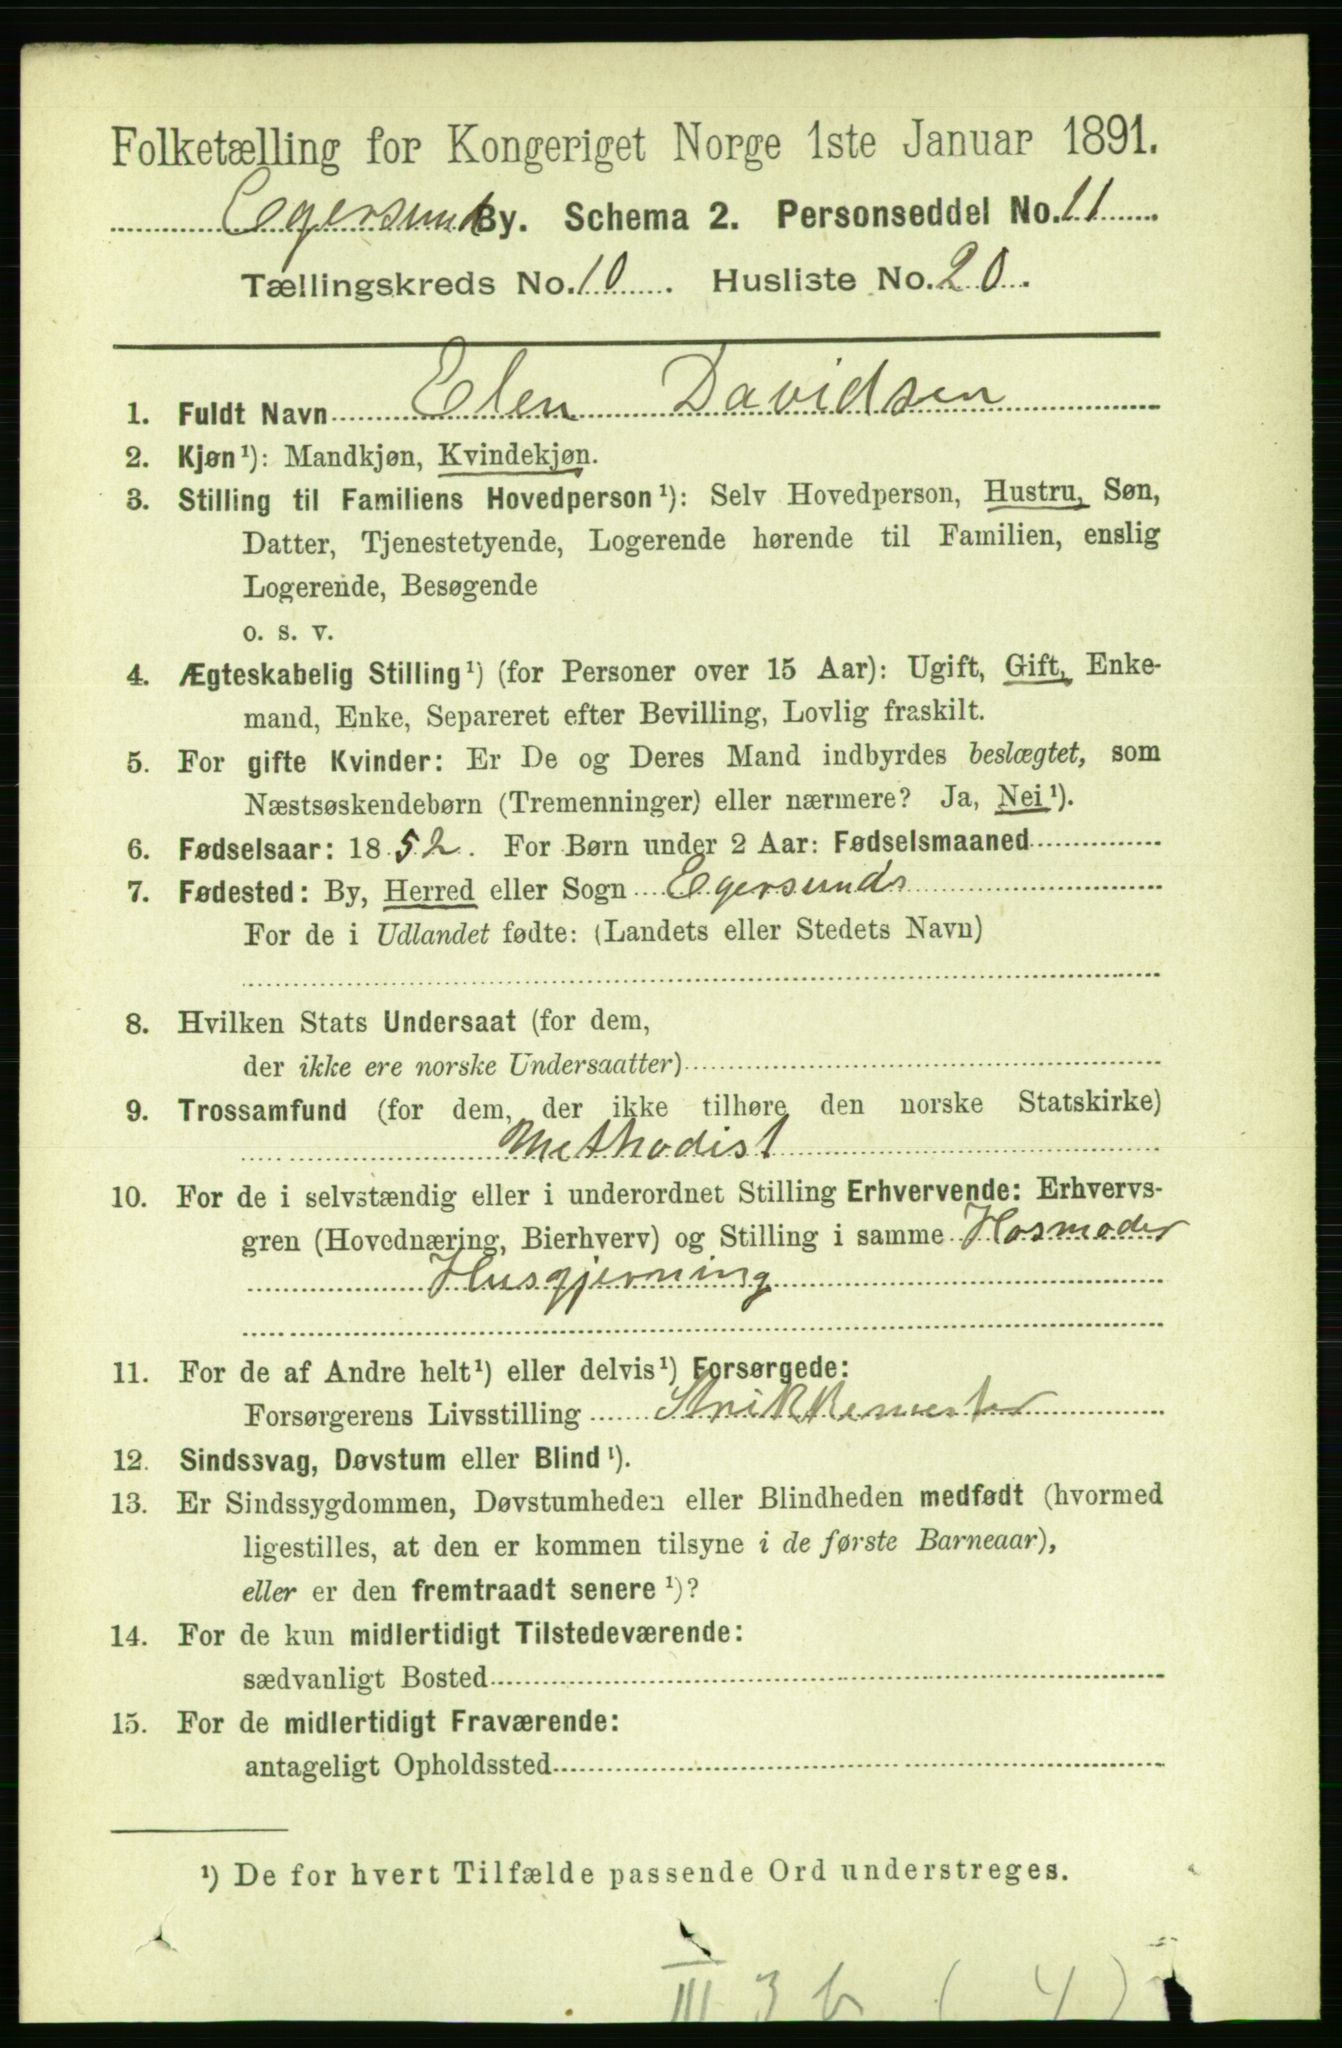 Folketælling for Kongeriget Norge 1ste Januar 1891.
Egersund By. Schema 2. Personseddel No. 11
Tællingskreds No. 10. Husliste No. 20.
1. Fuldt Navn Elen Davidsen
2. Kjøn¹): Mandkjøn, Kvindekjøn.
3. Stilling til Familiens Hovedperson¹): Selv Hovedperson, Hustru, Søn,
Datter, Tjenestetyende, Logerende hørende til Familien, enslig
Logerende, Besøgende
o. s. v.
4. Ægteskabelig Stilling¹) (for Personer over 15 Aar): Ugift, Gift, Enke-
mand, Enke, Separeret efter Bevilling, Lovlig fraskilt.
5. For gifte Kvinder: Er De og Deres Mand indbyrdes beslægtet, som
Næstsøskendebørn (Tremenninger) eller nærmere? Ja, Nei¹).
6. Fødselsaar: 1852. For Børn under 2 Aar: Fødselsmaaned
7. Fødested: By, Herred eller Sogn Egersunds
For de i Udlandet fødte: (Landets eller Stedets Navn)
8. Hvilken Stats Undersaat (for dem,
der ikke ere norske Undersaatter)
9. Trossamfund (for dem, der ikke tilhøre den norske Statskirke)
Methodist
10. For de i selvstændig eller i underordnet Stilling Erhvervende: Erhvervs-
gren (Hovednæring, Bierhverv) og Stilling i samme Hosmoder
Husgjerning
11. For de af Andre helt¹) eller delvis¹) Forsørgede:
Forsørgerens Livsstilling
12. Sindssvag, Døvstum eller Blind¹).
13. Er Sindssygdommen, Døvstumheden eller Blindheden medfødt (hvormed
ligestilles, at den er kommen tilsyne i de første Barneaar),
eller er den fremtraadt senere¹)?
14. For de kun midlertidigt Tilstedeværende:
sædvanligt Bosted
15. For de midlertidigt Fraværende:
antageligt Opholdssted
¹) De for hvert Tilfælde passende Ord understreges.
III 3 b (4)